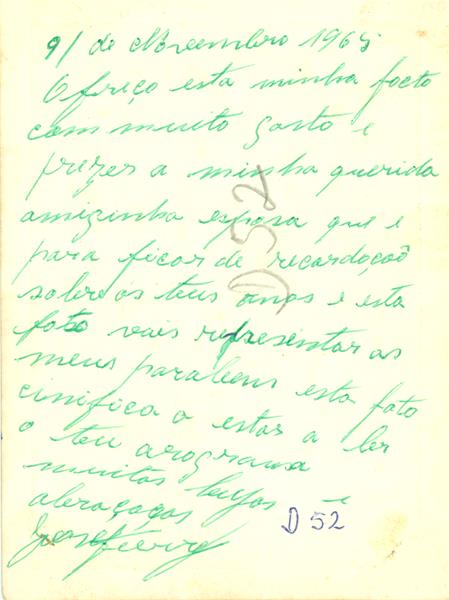 9/ de Novembro 1965
Ofreço esta minha focto
com muito gosto e
prezer a minha querida
amizinha esposa que e
para ficar de recardoçaõ
sobre os teus anos e esta
foto vais refresentar as
meus parabens esta foto
cinifica a estar a ler
o teu arograma
muitas beijos e
abraçaços
D 52
D 52